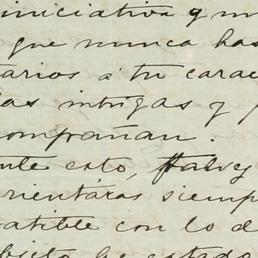 iniciativa y m
que nunca has
tarios á tu carac
las intrigas y
compañan.
nte esto, talvez
rientaras siemp
patible con lo d
he estado